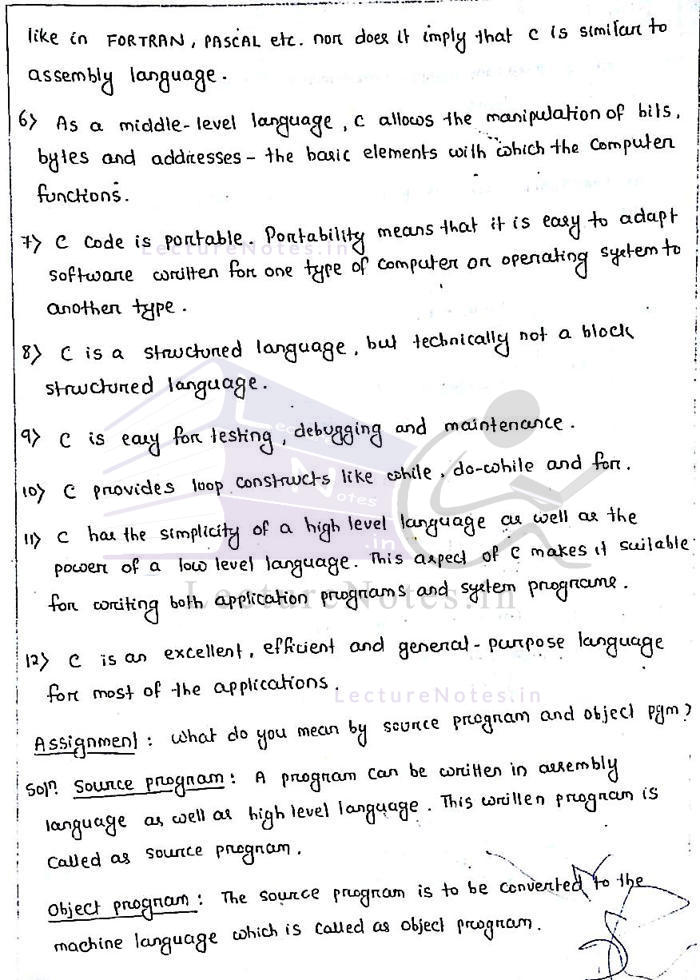 like in FORTRAN, PASCAL etc. nor does it imply that C is similar to
assembly language.
6> As a middle-level language, C allows the manipulation of bits,
bytes and addresses - the basic elements with which the computer
functions.
7> C code is portable. Portability means that it is easy to adapt
LectureNotes.in
software written for one type of computer or operating system to
another type.
8> C is a structured language, but technically not a block
structured language.
9> C is easy for testing, debugging and maintenance.
10> C provides loop constructs like while, do-while and for.
Lecture
Notes
.in
11> C has the simplicity of a high level language as well as the
power of a low level language. This aspect of C makes it suitable
for writing both application programs and system programs.
LectureNotes.in
12> C is an excellent, efficient and general-purpose language
for most of the applications.
LectureNotes.in
Assignment: What do you mean by source program and object pgm?
Solⁿ. Source program: A program can be written in assembly
language as well as high level language. This written program is
called as source program.
Object program: The source program is to be converted to the
machine language which is called as object program.